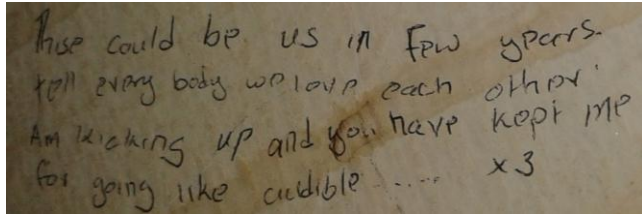 These could be us in few years.
tell every body we love each other.
Am kicking up and you have kept me
for going like cridible ..... x3